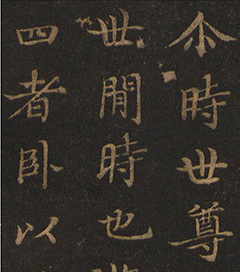 尒時世尊
世間時也
四者卧以